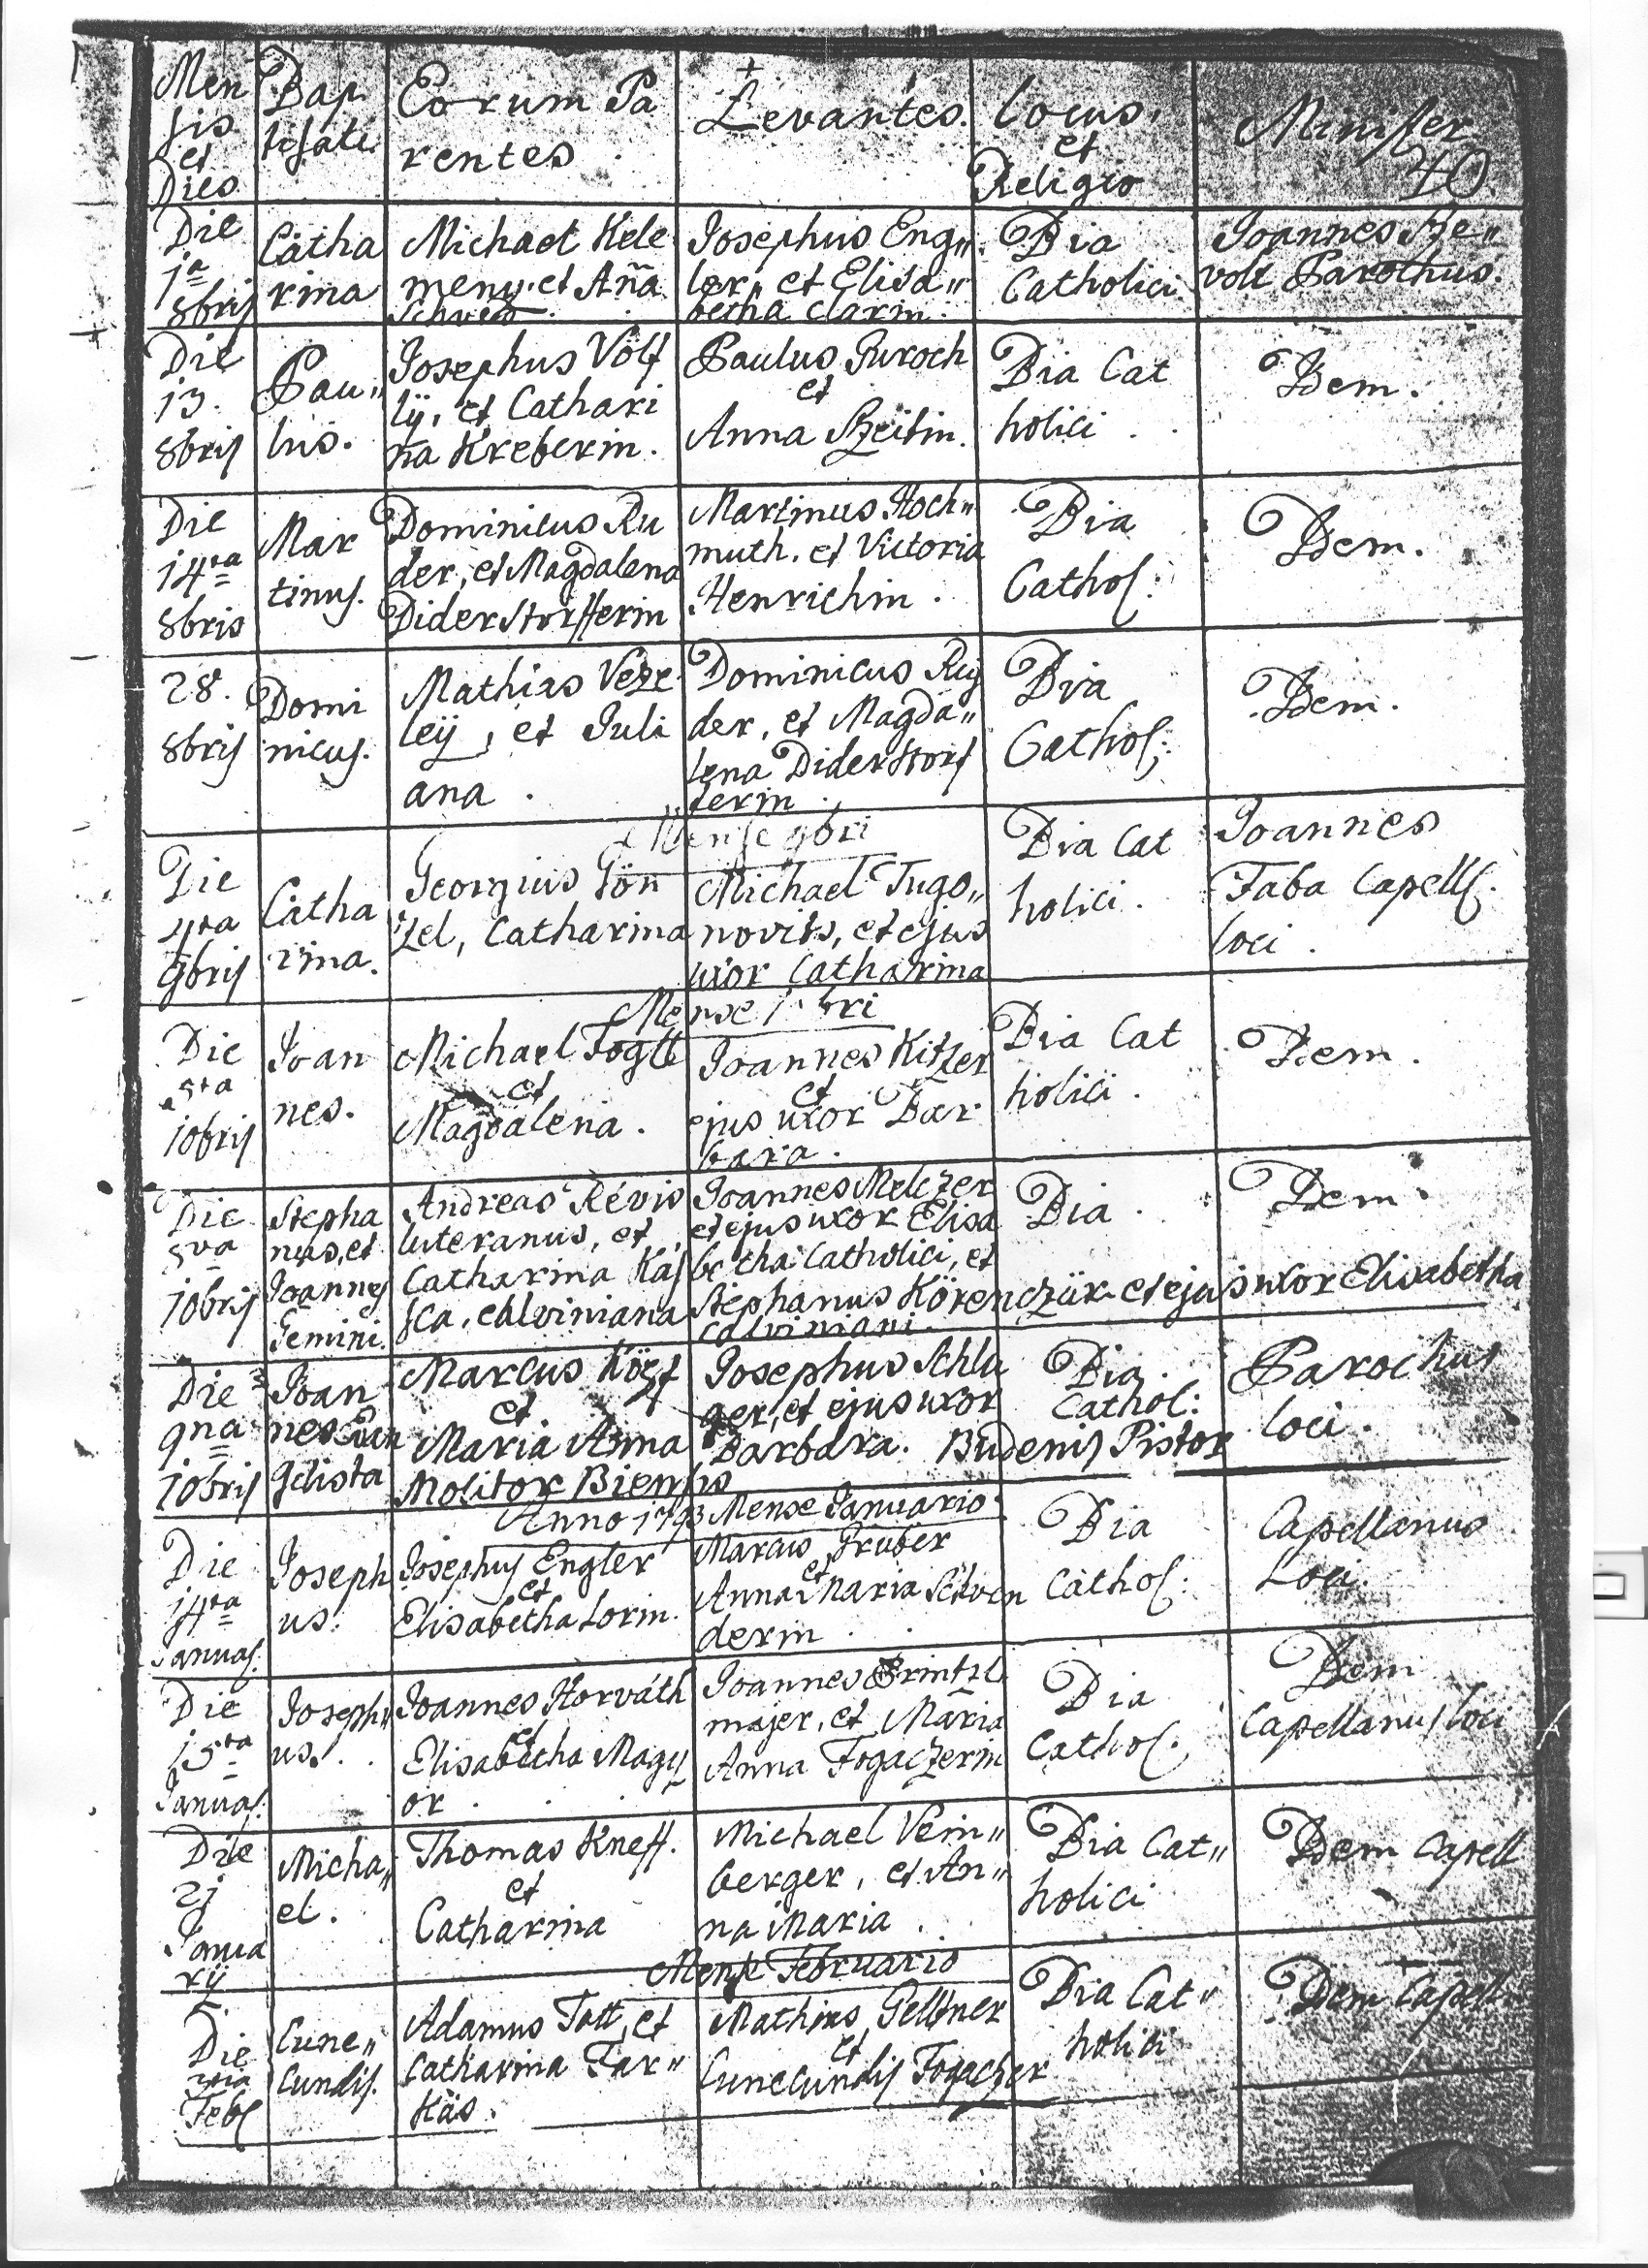 Men
sis
et
Dies
Bap
tisati
Eorum Pa
rentes
Levantes.
Locus.
et
Religio
Minister
40
Die
1a
8bris
Catha
rina
Michael Kele
meny. et Aña
Josephus Eng„
ler, et Elisa„
betha Clarin.
Bia
Catholici
Joannes Sze„
volt Parochus.
Die
13.
8bris
Pau„
lus.
Josephus Völf
lij, et Cathari
na Kreberin.
Paulus Guroch
et
Anna Szeitin.
Bia Cat
holici.
Idem.
Die
14ta
8bris
Mar
tinus.
Dominicus Ru
der, et Magdalena
Diderstorfferin
Martinus Hoch„
muth. et Victoria
Henrichin.
Bia
Cathol:
Idem.
28.
8bris
Domi
nicus.
Mathias Veze
leij, et Juli
ana.
Dominicus Ruj
der, et Magda„
lena Diderstorf
ferin.
Bia
Cathol:
Idem.
Mense 9bri
Die
4ta
9bris
Catha
rina.
Georgius Gön
zel, Catharina
Michael Jugo„
novits, et ejus
uxor Catharina
Bia Cat
holici.
Joannes
Faba Capell.
loci.
Mense 10bri
Die
5ta
10bris
Joan
nes.
Michael Fogtl
et
Magdalena.
Joannes Kitzer
et
ejus uxor Bar
bara.
Bia Cat
holici.
Idem.
Die
8va
10bris
Stepha
nus, et
Joannes
Gemini.
Andreas Révis
luteranus, et
Catharina Kás
sca, calviniana
Joannes Melczer
et ejus uxor Elisa
betha Catholici, et
Stephanus Körenczür et ejus uxor Elisabetha
calviniani.
Bia.
Idem.
Die
9na
10bris
Joan
nes Evan
gelista
Marcus Köpf
et
Maria Anna
Molitor Biensis
Josephus Schla
ger, et ejus uxor
Barbara. Budenis Pistor
Bia.
Cathol:
Parochus
loci.
Anno 1793 Mense Januario
Die
14ta
Januar:
Joseph
us.
Josephus Engler
et
Elisabetha Lorin.
Marcus Gruber
et
Anna Maria Schven
derin.
Bia
Cathol:
Capellanus
Loci.
Die
15ta
Januar:
Joseph„
us.
Joannes Horváth
et
Elisabetha Magy
or.
Joannes Printzl
majer, et Maria
Anna Fogaczerin
Bia
Cathol:
Idem
Capellanus loci
Die
21
Janua
rij
Micha„
el.
Thomas Kneff.
et
Catharina
Michael Vein„
berger, et An„
na Maria.
Bia Cat„
holici
Idem Capell
Mense Februario
Die
Feb
Cune„
Cundis.
Adamus Tott, et
Catharina Far„
kás.
Mathias Gelltner
et
Cunecundis Fogaczer
Bia Cat„
holici
Idem Capell.